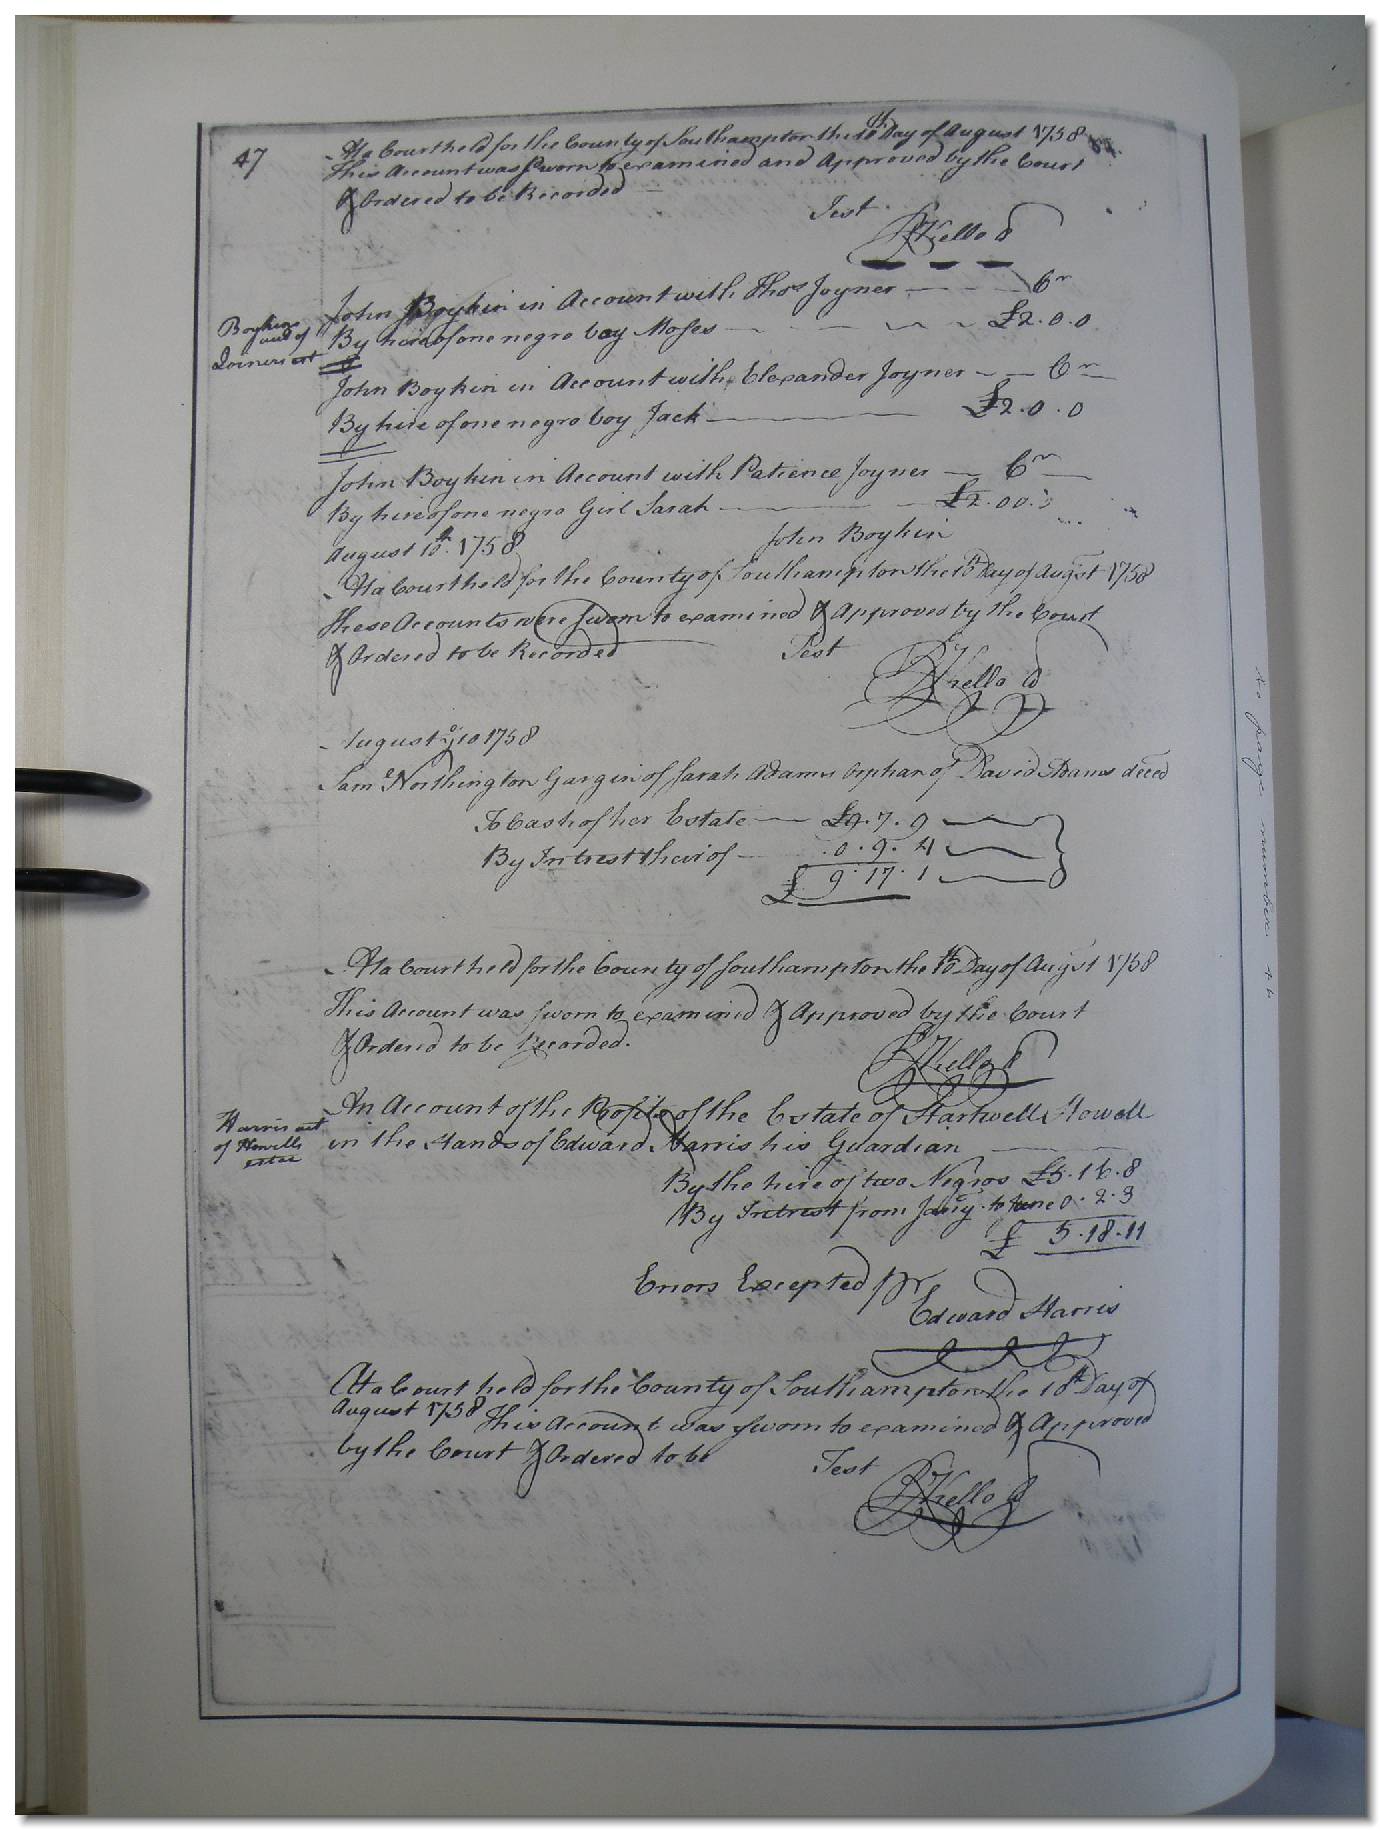 47
At a Court held for the County of Southampton the 10th Day of August 1758
This Account was Sworn to examined and Approved by the Court
& Ordered to be Recorded
Test
RKello
John Boykin in Account with Thos Joyner Cr
By hire of one negro boy Moses £2.0.0
Boykins
acct of
Joiners est
John Boykin in Account with Elexander Joyner Cr
By hire of one negro boy Jack £2.0.0
John Boykin in Account with Patience Joyner Cr
By hire of one negro Girl Sarah £2.00.
August 10th 1758 John Boykin
At a Court held for the County of Southampton the 10th Day of Augst 1758
These Accounts were Sworn to examined & Approved by the Court
& Ordered to be Recorded Test
RKello
August ye 10 1758
Saml Northington Gargin of Sarah Adams orphan of David Adams deced
To Cash of her Estate £9.7.9
By Intrest their of 0.9.4
£ 9.17.1
At a Court held for the County of Southampton the 10th Day of Augst 1758
This Account was Sworn to examined & Approved by the Court
& Ordered to be Recorded.
RKello
An Account of the Profits of the Estate of Hartwell Howell
in the Hands of Edward Harris his Guardian
Harris act
of Howells
estae
By the hire of two Negros £5.16.8
By Intrest from Jany. to June 0.2.3
£ 5.18.11
Errors Excepted pr
Edward Harris
At a Court held for the County of Southampton the 10th Day of
August 1758 This Account was Sworn to examined & Approved
by the Court & Ordered to be Test
RKello
no page number 46